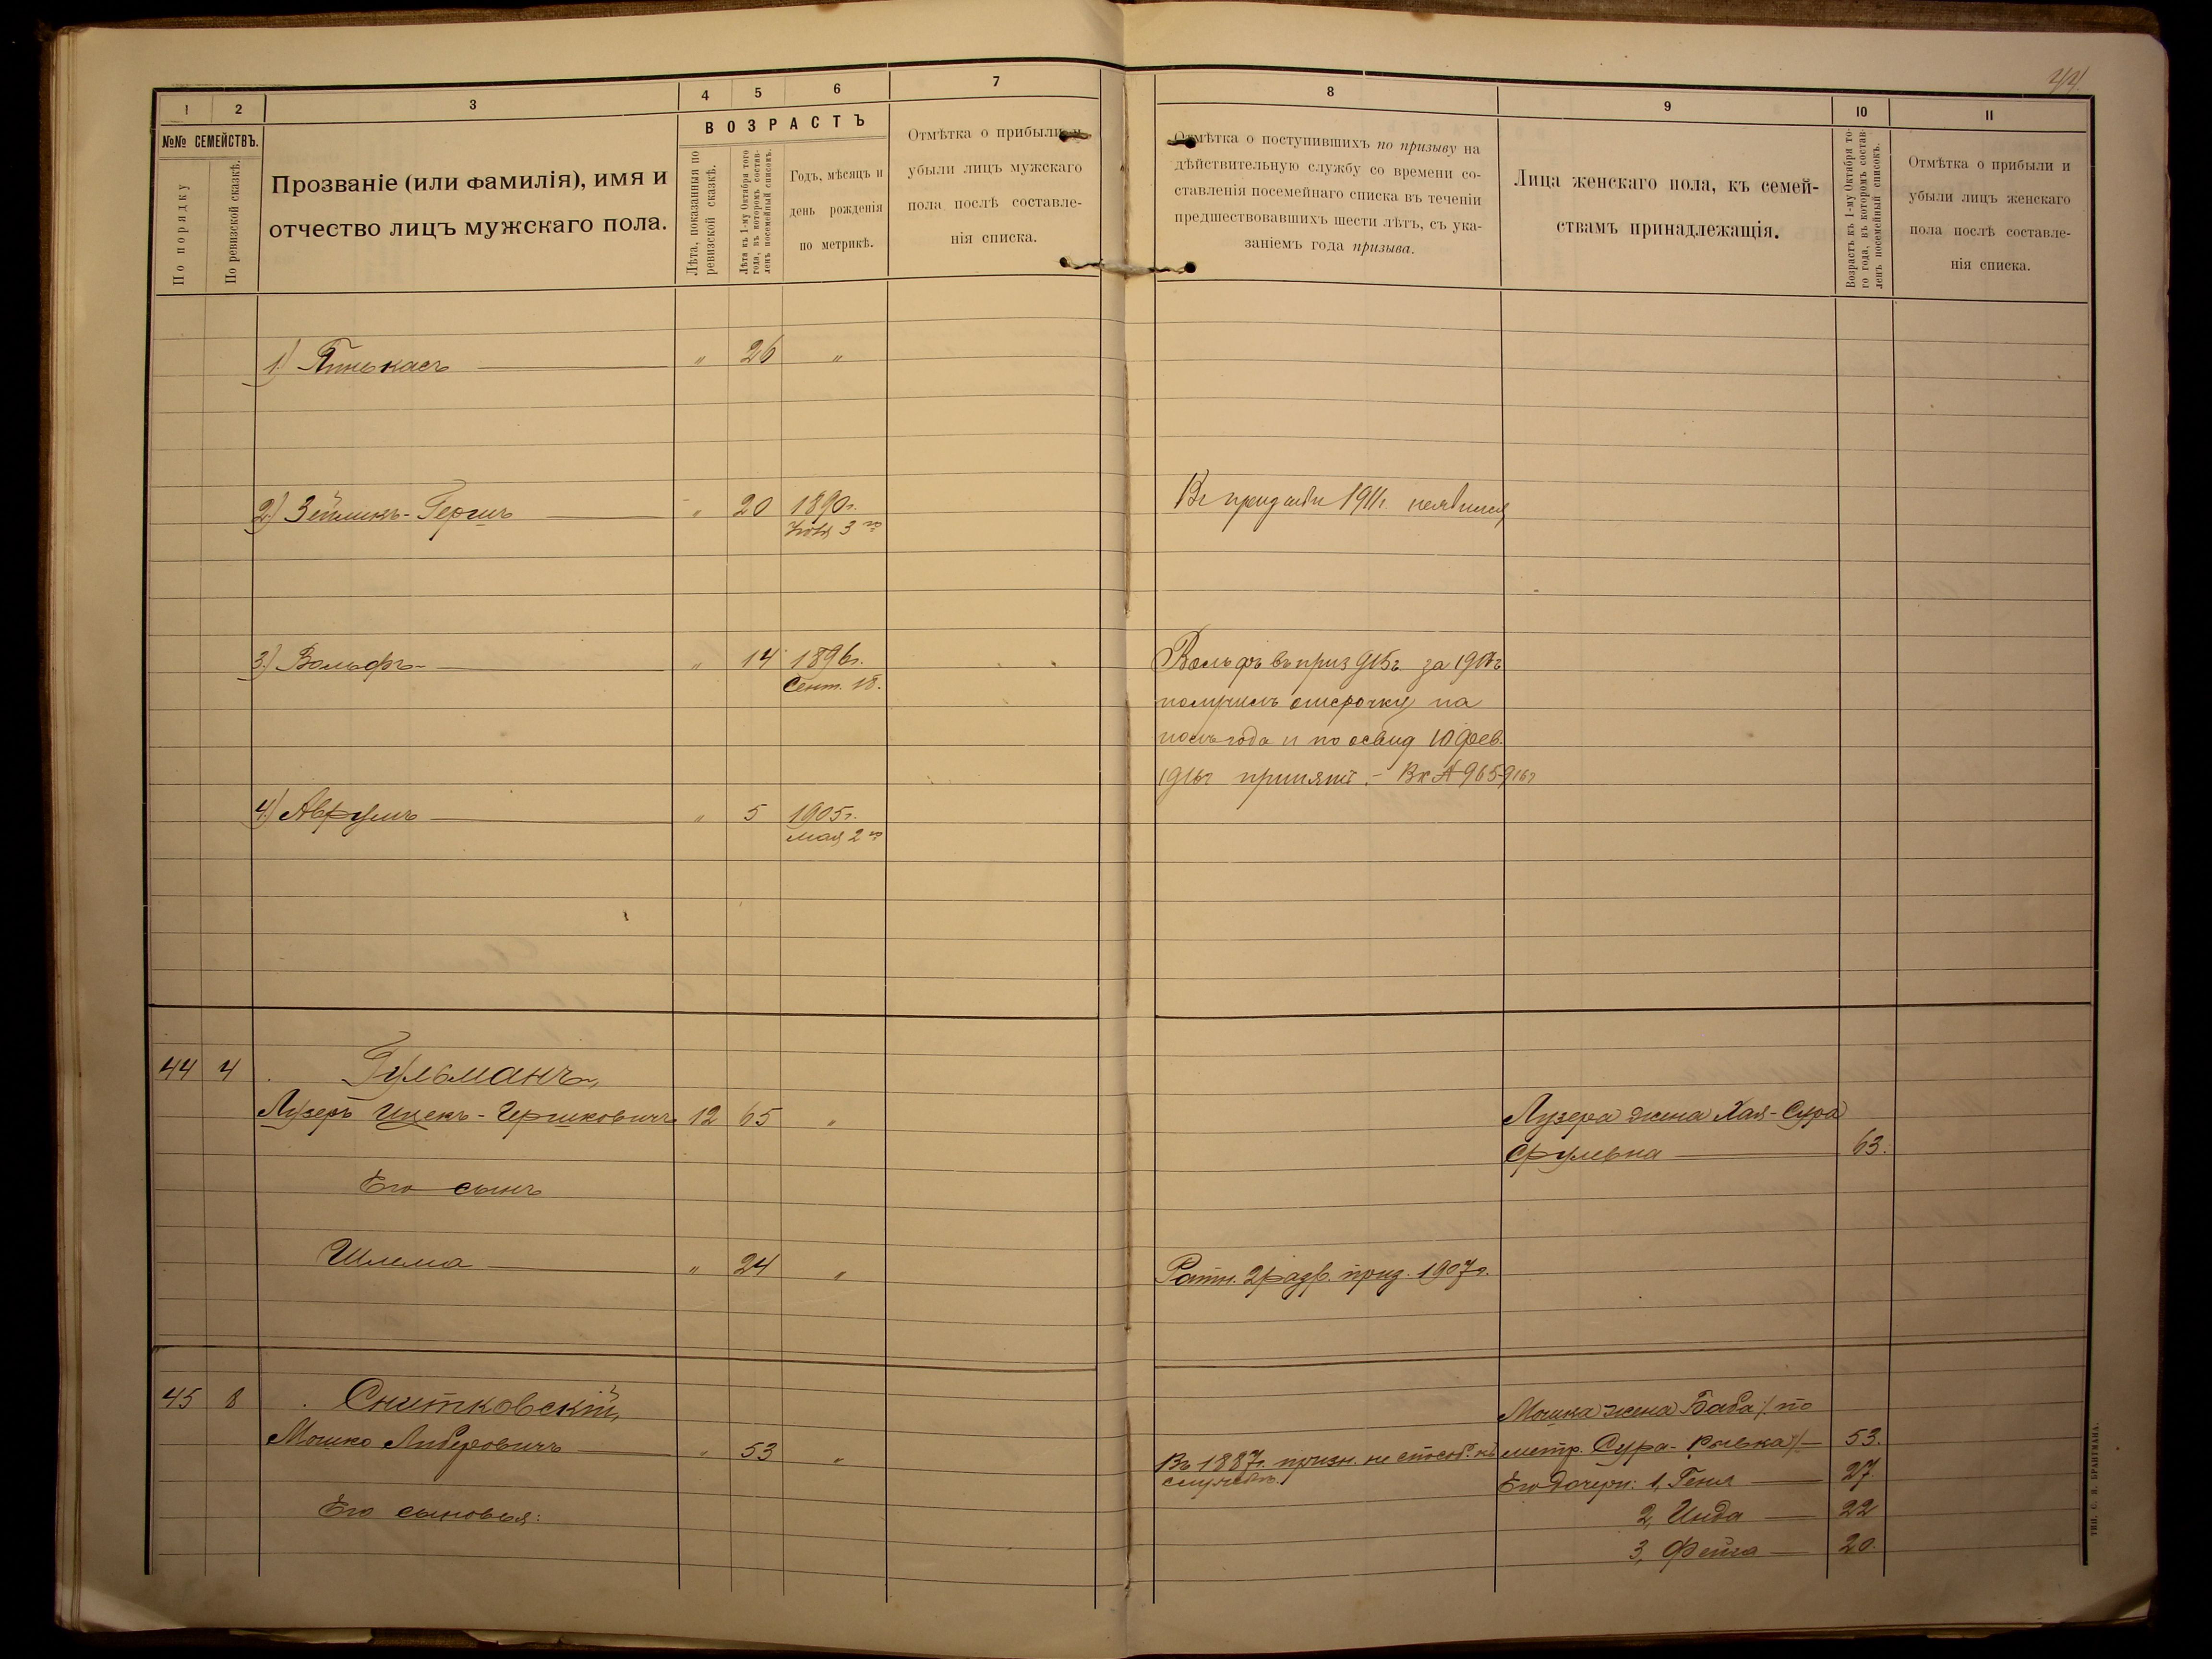 44
1
2
3
4
5
6
7
8
9
10
11
№№ СЕМЕЙСТВЪ.
По порядку
По ревизской сказкѣ.
Прозваніе (или фамилія), имя и
отчество лицъ мужскаго пола.
ВОЗРАСТЪ
Лѣта, показанныя по
ревизской сказкѣ.
Лѣта къ 1-му Октября того
года, въ которомъ состав-
ленъ посемейный списокъ.
Годъ, мѣсяцъ и
день рожденія
по метрикѣ.
Отмѣтка о прибыли и
убыли лицъ мужскаго
пола послѣ составле-
нія списка.
Отмѣтка о поступившихъ по призыву на
дѣйствительную службу со времени со-
ставленія посемейнаго списка въ теченіи
предшествовавшихъ шести лѣтъ, съ ука-
заніемъ года призыва.
Лица женскаго пола, къ семей-
ствамъ принадлежащія.
Возрастъ къ 1-му Октября то-
го года, въ которомъ состав-
ленъ посемейный списокъ.
Отмѣтка о прибыли и
убыли лицъ женскаго
пола послѣ составле-
нія списка.
1) Пинькасъ — " 26 "
2) Зейликъ-Гершъ — " 20 1890г.
3го
Въ 1911г. неявился
3) Вольфъ — " 14 1896г.
Сент. 18.
Вольфъ въ приз 915г. за 1917г
получилъ отсрочку на
полъ года и по освид 10 фев.
1916г принятъ. —
4) Аврумъ — " 5 1905г.
мая 2го
44 4 Гульманъ,
Лузеръ Ицекъ-Гершковичъ 12 65 "
Лузера жена Хая-Сура
Срулевна — 63.
Его сынъ
Шлема — " 24 "
Ратн. 2 разр. приз. 1907г.
45 8 Снитковскій,
Мошко Лейзеровичъ — " 53 "
Въ 1887г. призн. не способ. къ
службѣ.
Мошка жена Баба /по
метр. Сура-Рывка/ — 53.
Его дочери: 1, Геня — 27.
2, Инда — 22
3, Фейга — 20.
Его сыновья:
ТИП. С. П. БРАНТМАНА.